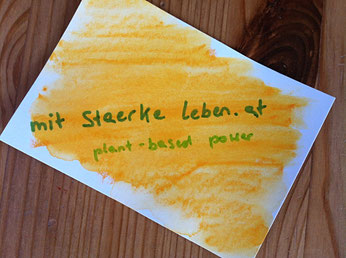 mit Staerke leben.at
plant-based power